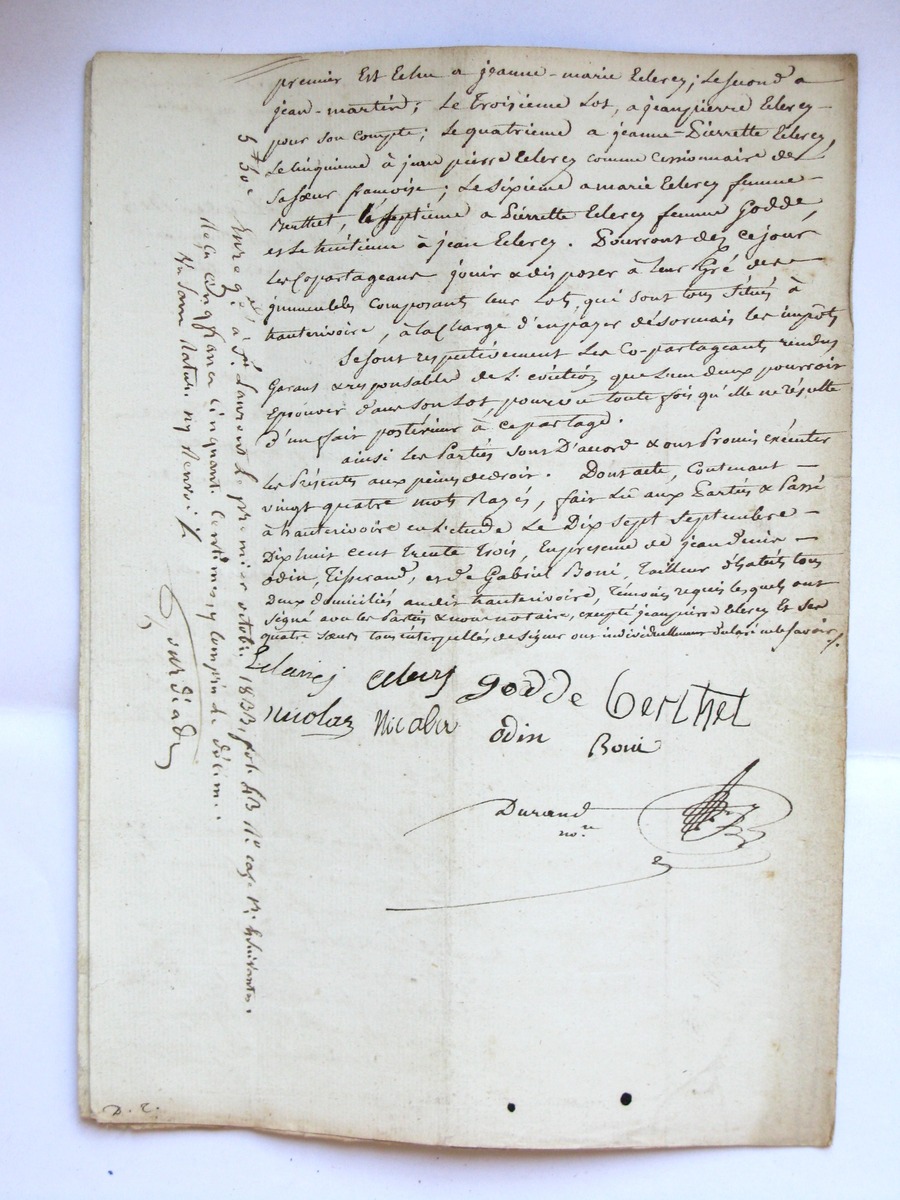 premier Est Echu a jeanne-marie Eclercy; Le second a
jean-martin; Le Troisieme Lot, a jeanpierre Eclercy
pour son compte; Le quatrieme a jeanne-Pierrette Eclercy,
Le Cinquieme à jean pierre Eclercy comme Cessionnaire de
Sa Sœur francoise; Le Sixieme a marie Eclercy femme
Berthet, le Septieme a Pierrette Eclercy femme Godde,
et Le huitieme à jean Eclercy. Pourront dez ce jour
Les Copartageans jouir & disposer à leur Gré des
immeubles Composants leur Lots, qui sont tous Situés à
hauterivoire, à la Charge d'en payer désormais les impôts
Se sont respectivement Les Co-partageants rendus
Garant & responsables de L'éviction que L'un deux pourroit
Eprouver dans Son Lot pourvu toute fois qu'elle ne résulte
d'un fait postérieur à ce partage.
ainsi Les Parties sont D'accord & ont Promis exécuter
Les Présentes aux peines de droit. Dont acte, Contenant
vingt quatre mots Rayés, fait Lu aux Parties & Passé
à hauterivoire en L'etude Le Dix Sept Septembre
Dix huit Cent Trente Trois, En présence de jean Denis
Odin, Tisserand, et de Gabriel Boni, Tailleur d'habits tous
Deux domiciliés audit hauterivoire, Témoins requis lesquels ont
Signé avec les Parties & nous notaire, excepté jeanpierre Eclercy Et Ses
quatre sœurs tous interpellés de Signer ont individuellement déclaré ne le Savoir ./.
Eclercy Godde Berthet
Nicolas Odin Boni
Durand
nore
5f 50c Enregé. à St. Laurent le premier octobre 1833, fol. 43 Ro. case Ire. & Suivantes.
Reçu cinq francs cinquante centimes, y compris le décime.
D. C.